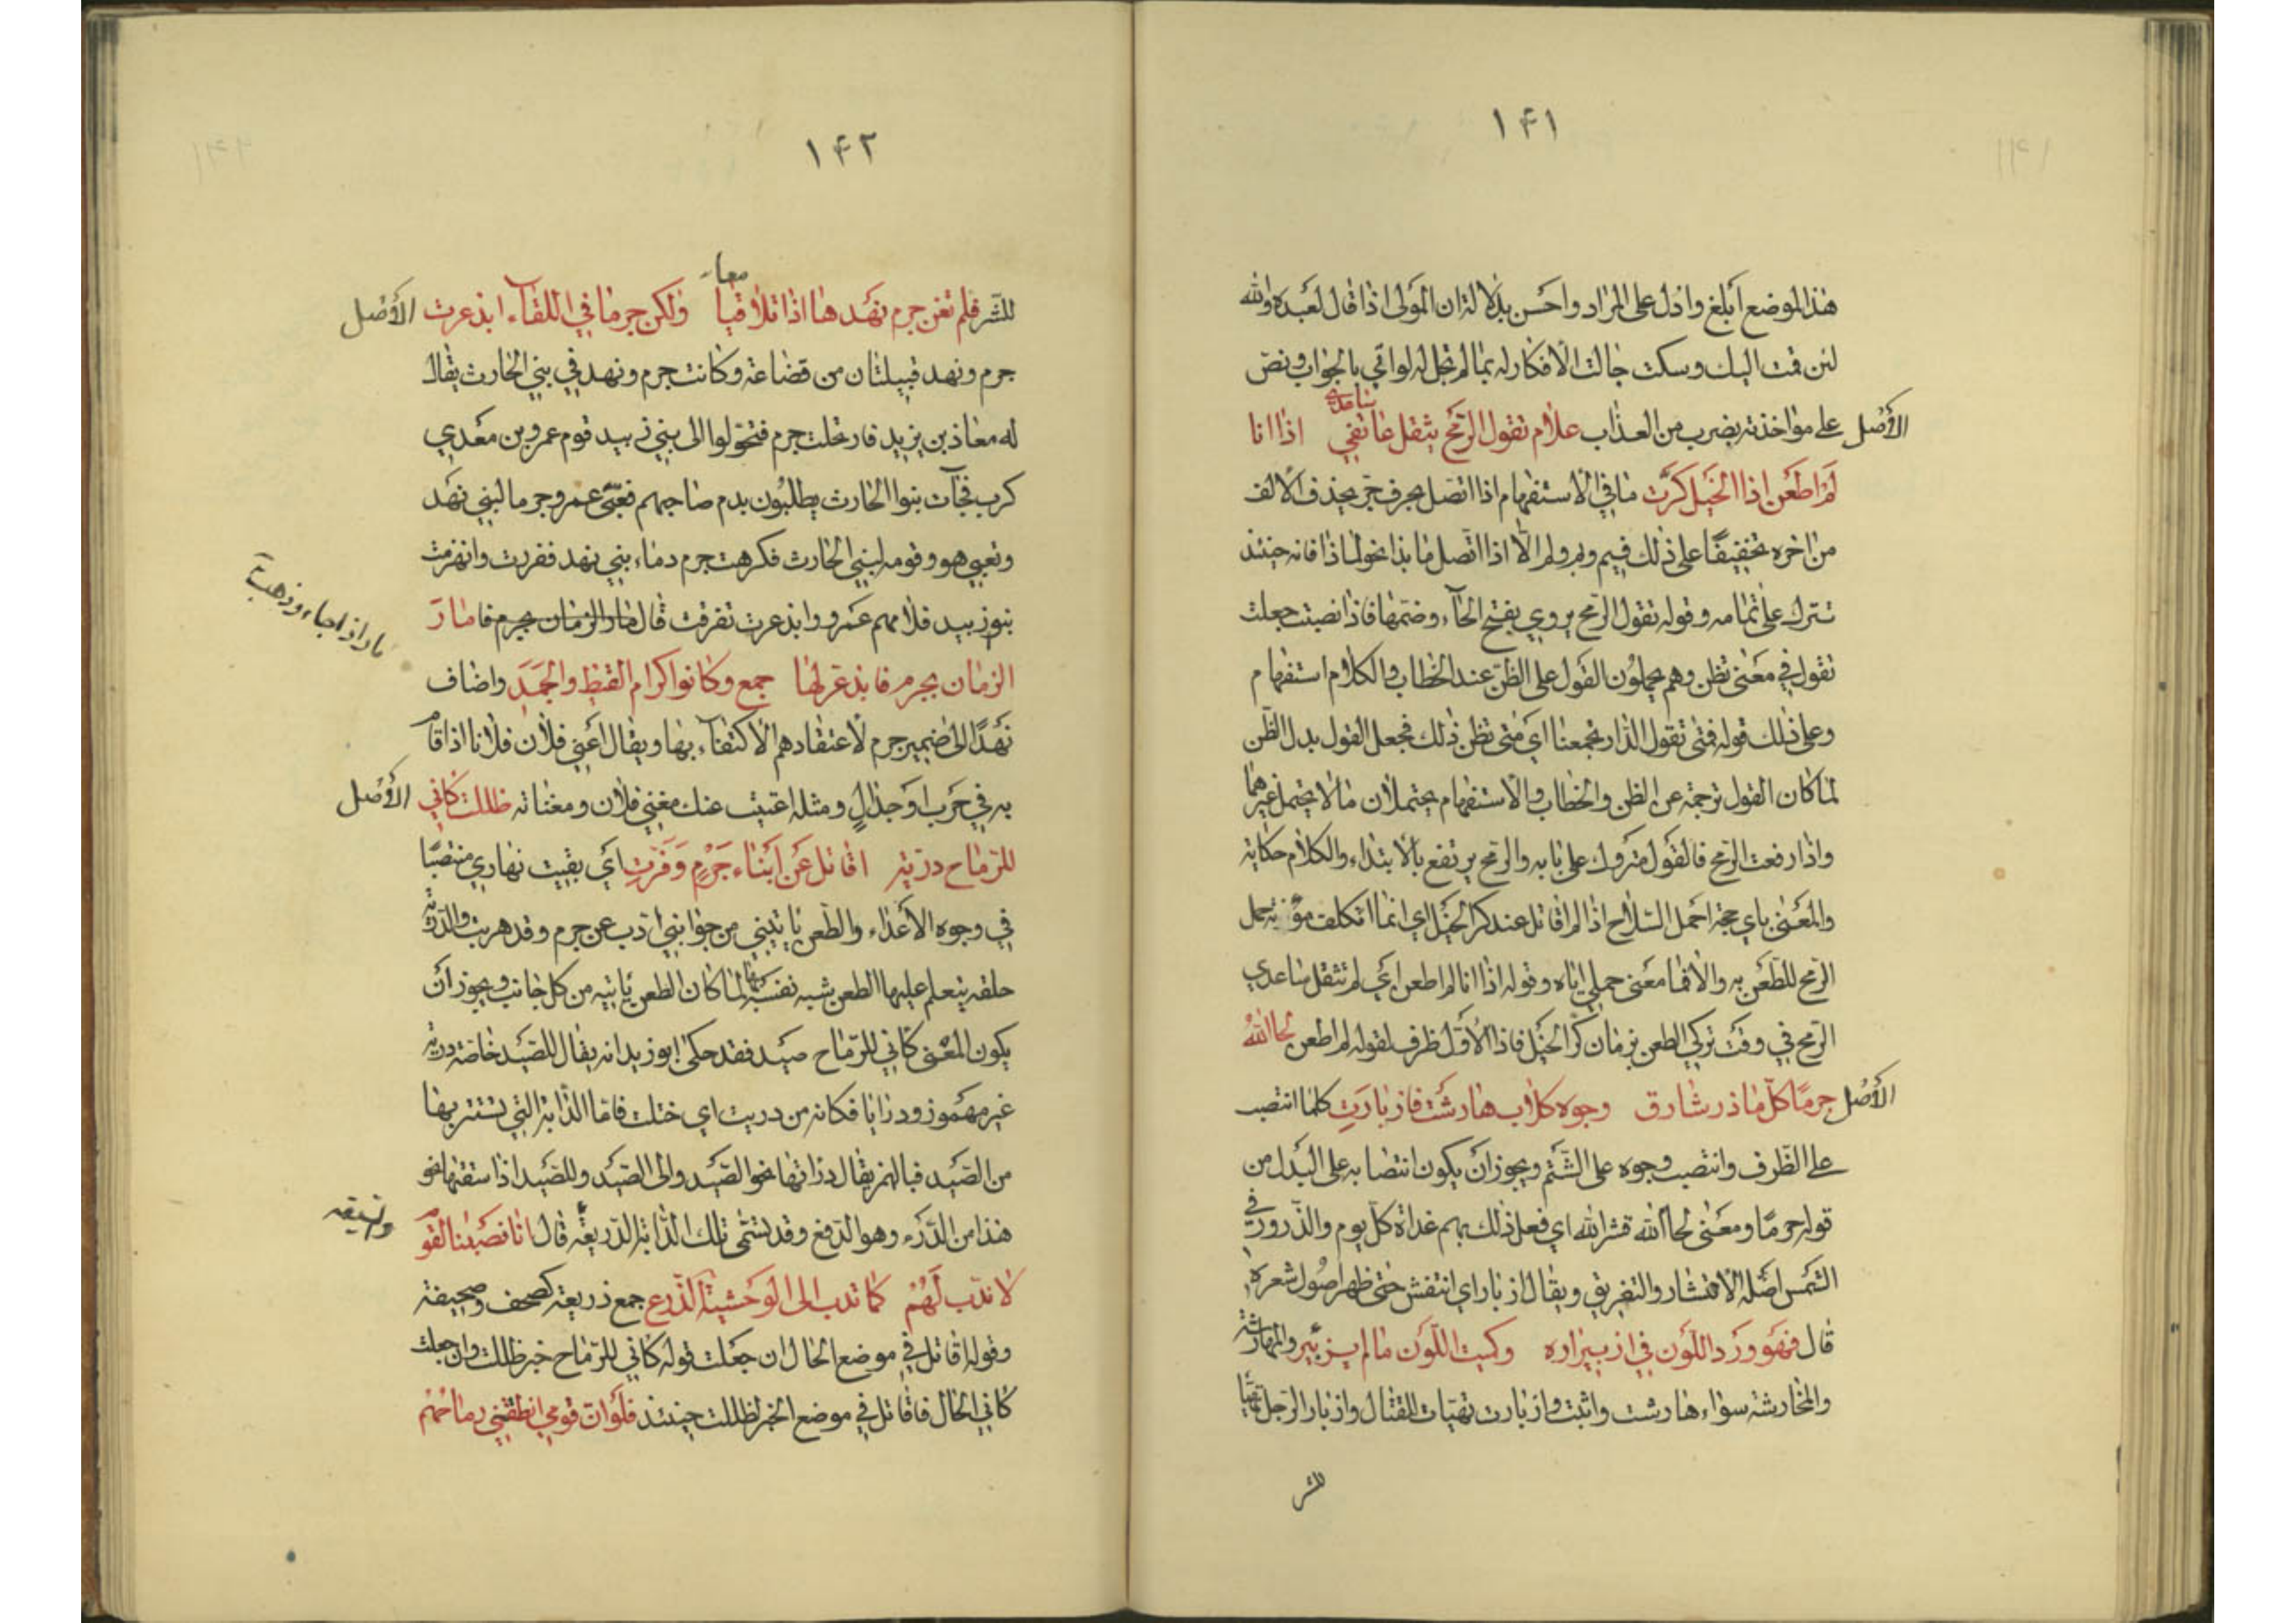 ١٤١
هذا الموضع أبلغ وادل على المراد واحسن بدلالة ان المولى اذا قال لعبده والله
لئن قمت اليك وسكت جالت الافكار له بمالم تجل له لواتي بالجواب ونص
الأصْل على مواخذته بضرب من العذاب علام تقول الرّمح يثقل عاتقي اذا انا
ساعدي
لَمْ اطْعَن إذا الخَيل كَرَّت ما في الاستفهام اذا اتصل بحرف جرّ يحذف الالف
من اخره تخفيفًا على ذلك فيم وبم ولم الّا اذا اتّصل ما بذا نحو لماذا فانه حينئذ
تترك على تمامه وقوله تقول الرّمح يروي بفتح الحآء وضمّها فاذا نصبت جعلت
تقول في معنى تظن وهم يحملون القول على الظن عند الخطاب والكلام استفهام
وعلى ذلك قوله فمتى تقول الدّار تجمعنا اي متى تظن ذلك فجعل القول بدل الظّن
لما كان القول ترجمة عن الظن والخطاب والاستفهام يحتملان مالا يحتمل غيرهما
واذا رفعت الرّمح فالقول متروك على بابه والرّمح يرتفع بالابتداء والكلام حكاية
والمعنى باي حجة احمل السّلاح اذا لم اقاتل عند كر الخيل اي انما اتكلف مؤنة حمل
الرّمح للطّعن به والا فما معنى حملي اياه وقوله اذا انا لم اطعن اي لم تثقل ساعدي
الرّمح في وقت تركي الطعن بزمان كرّ الخيل فاذا الاوّل ظرف لقوله لم اطعن لحا اللهُ
الأصْل جرمًا كلّ ما ذر شارق وجوه كلاب هارشت فازبارّت كلما انتصب
على الظّرف وانتصب وجوه على الشّتم ويجوز ان يكون انتصابه على البدل من
قوله جرمًا ومعنى لحا الله قشر الله اي فعل ذلك بهم غداة كلّ يوم والذّرور في
الشّمس اصله الانتشار والتفريق ويقال ازبار اي انتفش حتى ظهر اصُول شعره
قال فهو ورْد اللّون في ازبيراره وكميت اللّون مالم يزبئر والمهارشة
والمخارشة سواء هارشت واثبت وازبارت تهيّات للقتال وازبار الرّجل تهيّا
للشر
١٤٢
للشّر فلم تغن جرم نهْدها اذا تلاقيا ولكن جرما في اللقآء ابذعرت الأصْل
معا
جرم ونهد قبيلتان من قضاعة وكانت جرم ونهد في بني الحارث يقال
له معاذ بن يزيد فارتحلت جرم فتحوّلوا الى بني زبيد قوم عمرو بن معدي
كرب فجآت بنوا الحارث يطلبُون بدم صاحبهم فعبّى عمرو جرما لبني نهد
وتعبي هو وقومه لبني الحارث فكرهت جرم دماء بني نهد ففرت وانهزمت
بنوزبيد فلامهم عمرو وابذعرت تفرقت قال مار الزمان بجرم فا مارَ
مار اذا جاء وذهب
الزمان بجرم فابذعرلها جمع وكانوا كرام القبظ والجمَد واضاف
نهْدًا الى ضمير جرم لاعتقادهم الاكتفآء بها ويقال اغنى فلان فلانا اذا قام
به في حَرب او جدالٍ ومثله اغنيت عنك مغنى فلان ومغناته ظللت كاني الأصْل
للرّماح دريّة اقاتل عَن ابناء جَرْمٍ وَفَرّتِ اي بقيت نهاري منتصبًا
في وجوه الاعداء والطّعن ياتيني من جوانبي اذب عن جرم وقد هربت والدّريّة
حلقه يتعلم عليها الطعن شبه نفسه بها لما كان الطعن ياتيه من كل جانب ويجوز ان
يكون المعنى كاني للرّماح صيد فقد حكى ابوزيد انه يقال للصّيد خاصة دريّة
غير مهموز ودرايا فكانه من دريت اي ختلت فاما الدّابة التي يستتر بها
من الصّيد فبالهمز يقال دراتها نحو الصّيد والى الصّيد وللصّيد اذا سقتها نحو
هذا من الدّرء وهو الدّفع وقد تسمّى تلك الدّابة الذّريعة قال انا نصَبنا لقوم
لا ندّب لَهُمْ كما تدب الى الوحْشيّة الذّرع جمع ذريعة كصحف وصحيفة
وقوله اقاتل في موضع الحال ان جعلت قوله كاني للرّماح خبر ظللت وان جعلت
كاني الحال فاقاتل في موضع الخبر لظللت حينئذ فلوان قومي انطقتني رماحُهُم